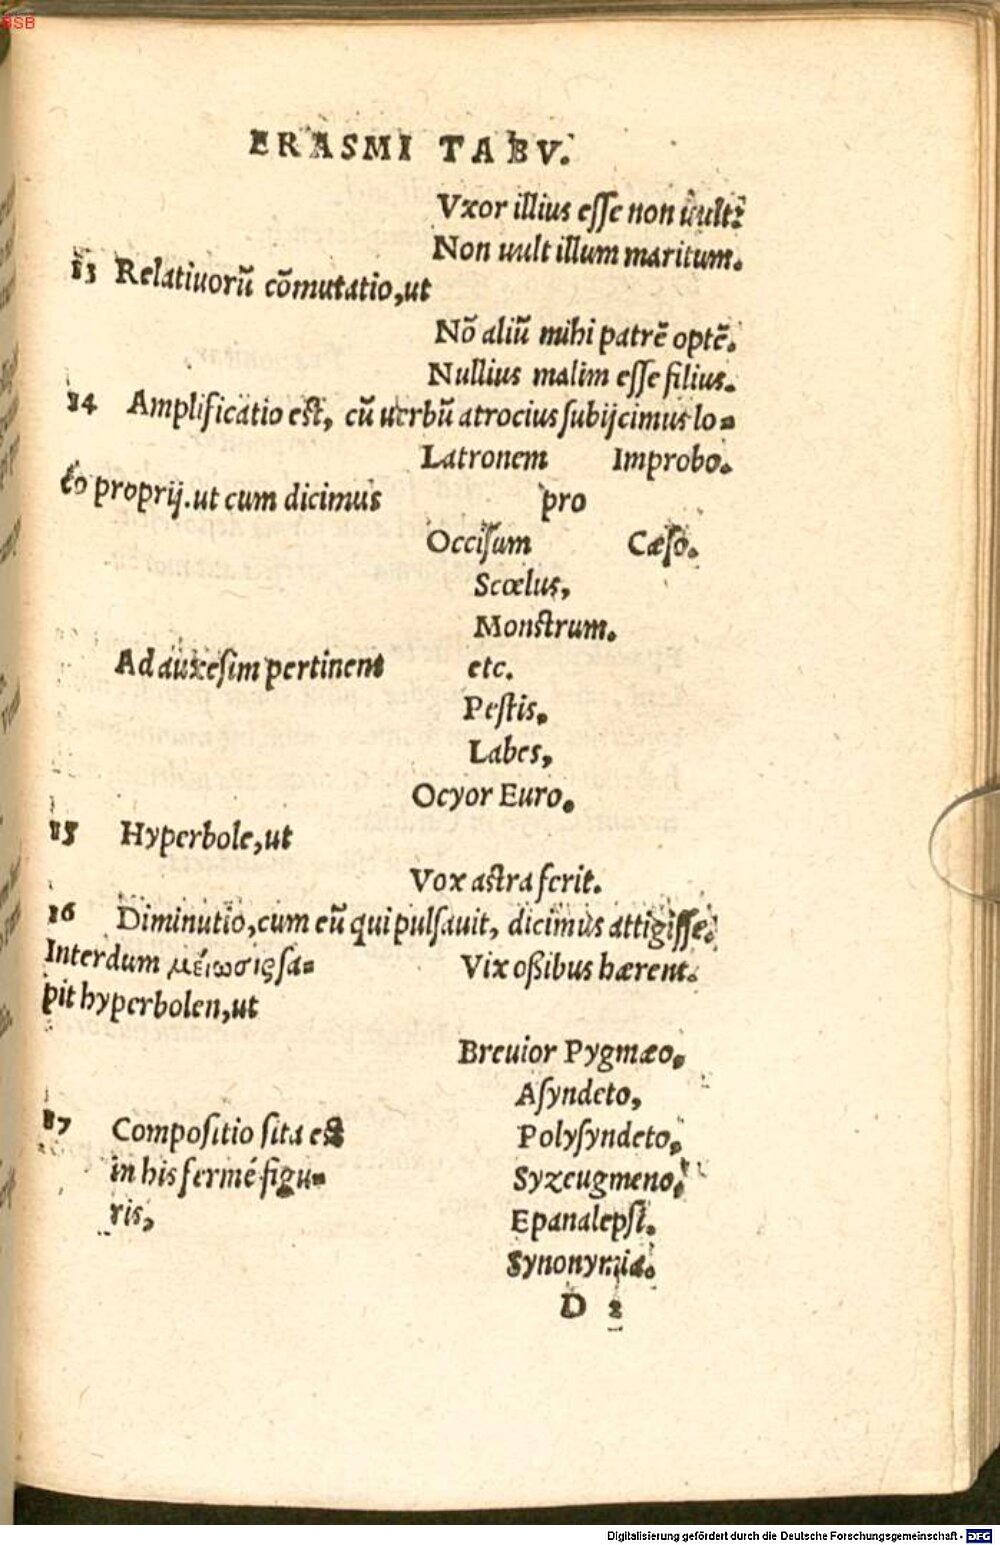 BSB
ERASMI TABV.
Vxor illius esse non uult:
Non uult illum maritum.
13 Relatiuorũ cõmutatio,ut
Nõ aliũ mihi patrẽ optẽ.
Nullius malim esse filius.
14 Amplificatio est, cũ uerbũ atrocius subijcimus lo=
Latronem Improbo.
co proprij.ut cum dicimus pro
Occisum Cæso.
Scœlus,
Monstrum.
Ad auxesim pertinent etc.
Pestis,
Labes,
Ocyor Euro.
15 Hyperbole,ut
Vox astra ferit.
16 Diminutio,cum eũ qui pulsauit, dicimus attigisse.
Interdum μείωσις sa= Vix oßibus hærent.
pit hyperbolen,ut
Breuior Pygmæo.
Asyndeto,
17 Compositio sita est Polysyndeto,
in his fermé figu= Syzeugmeno,
ris, Epanalepsi.
Synonymia.
D 2
Digitalisierung gefördert durch die Deutsche Forschungsgemeinschaft - DFG